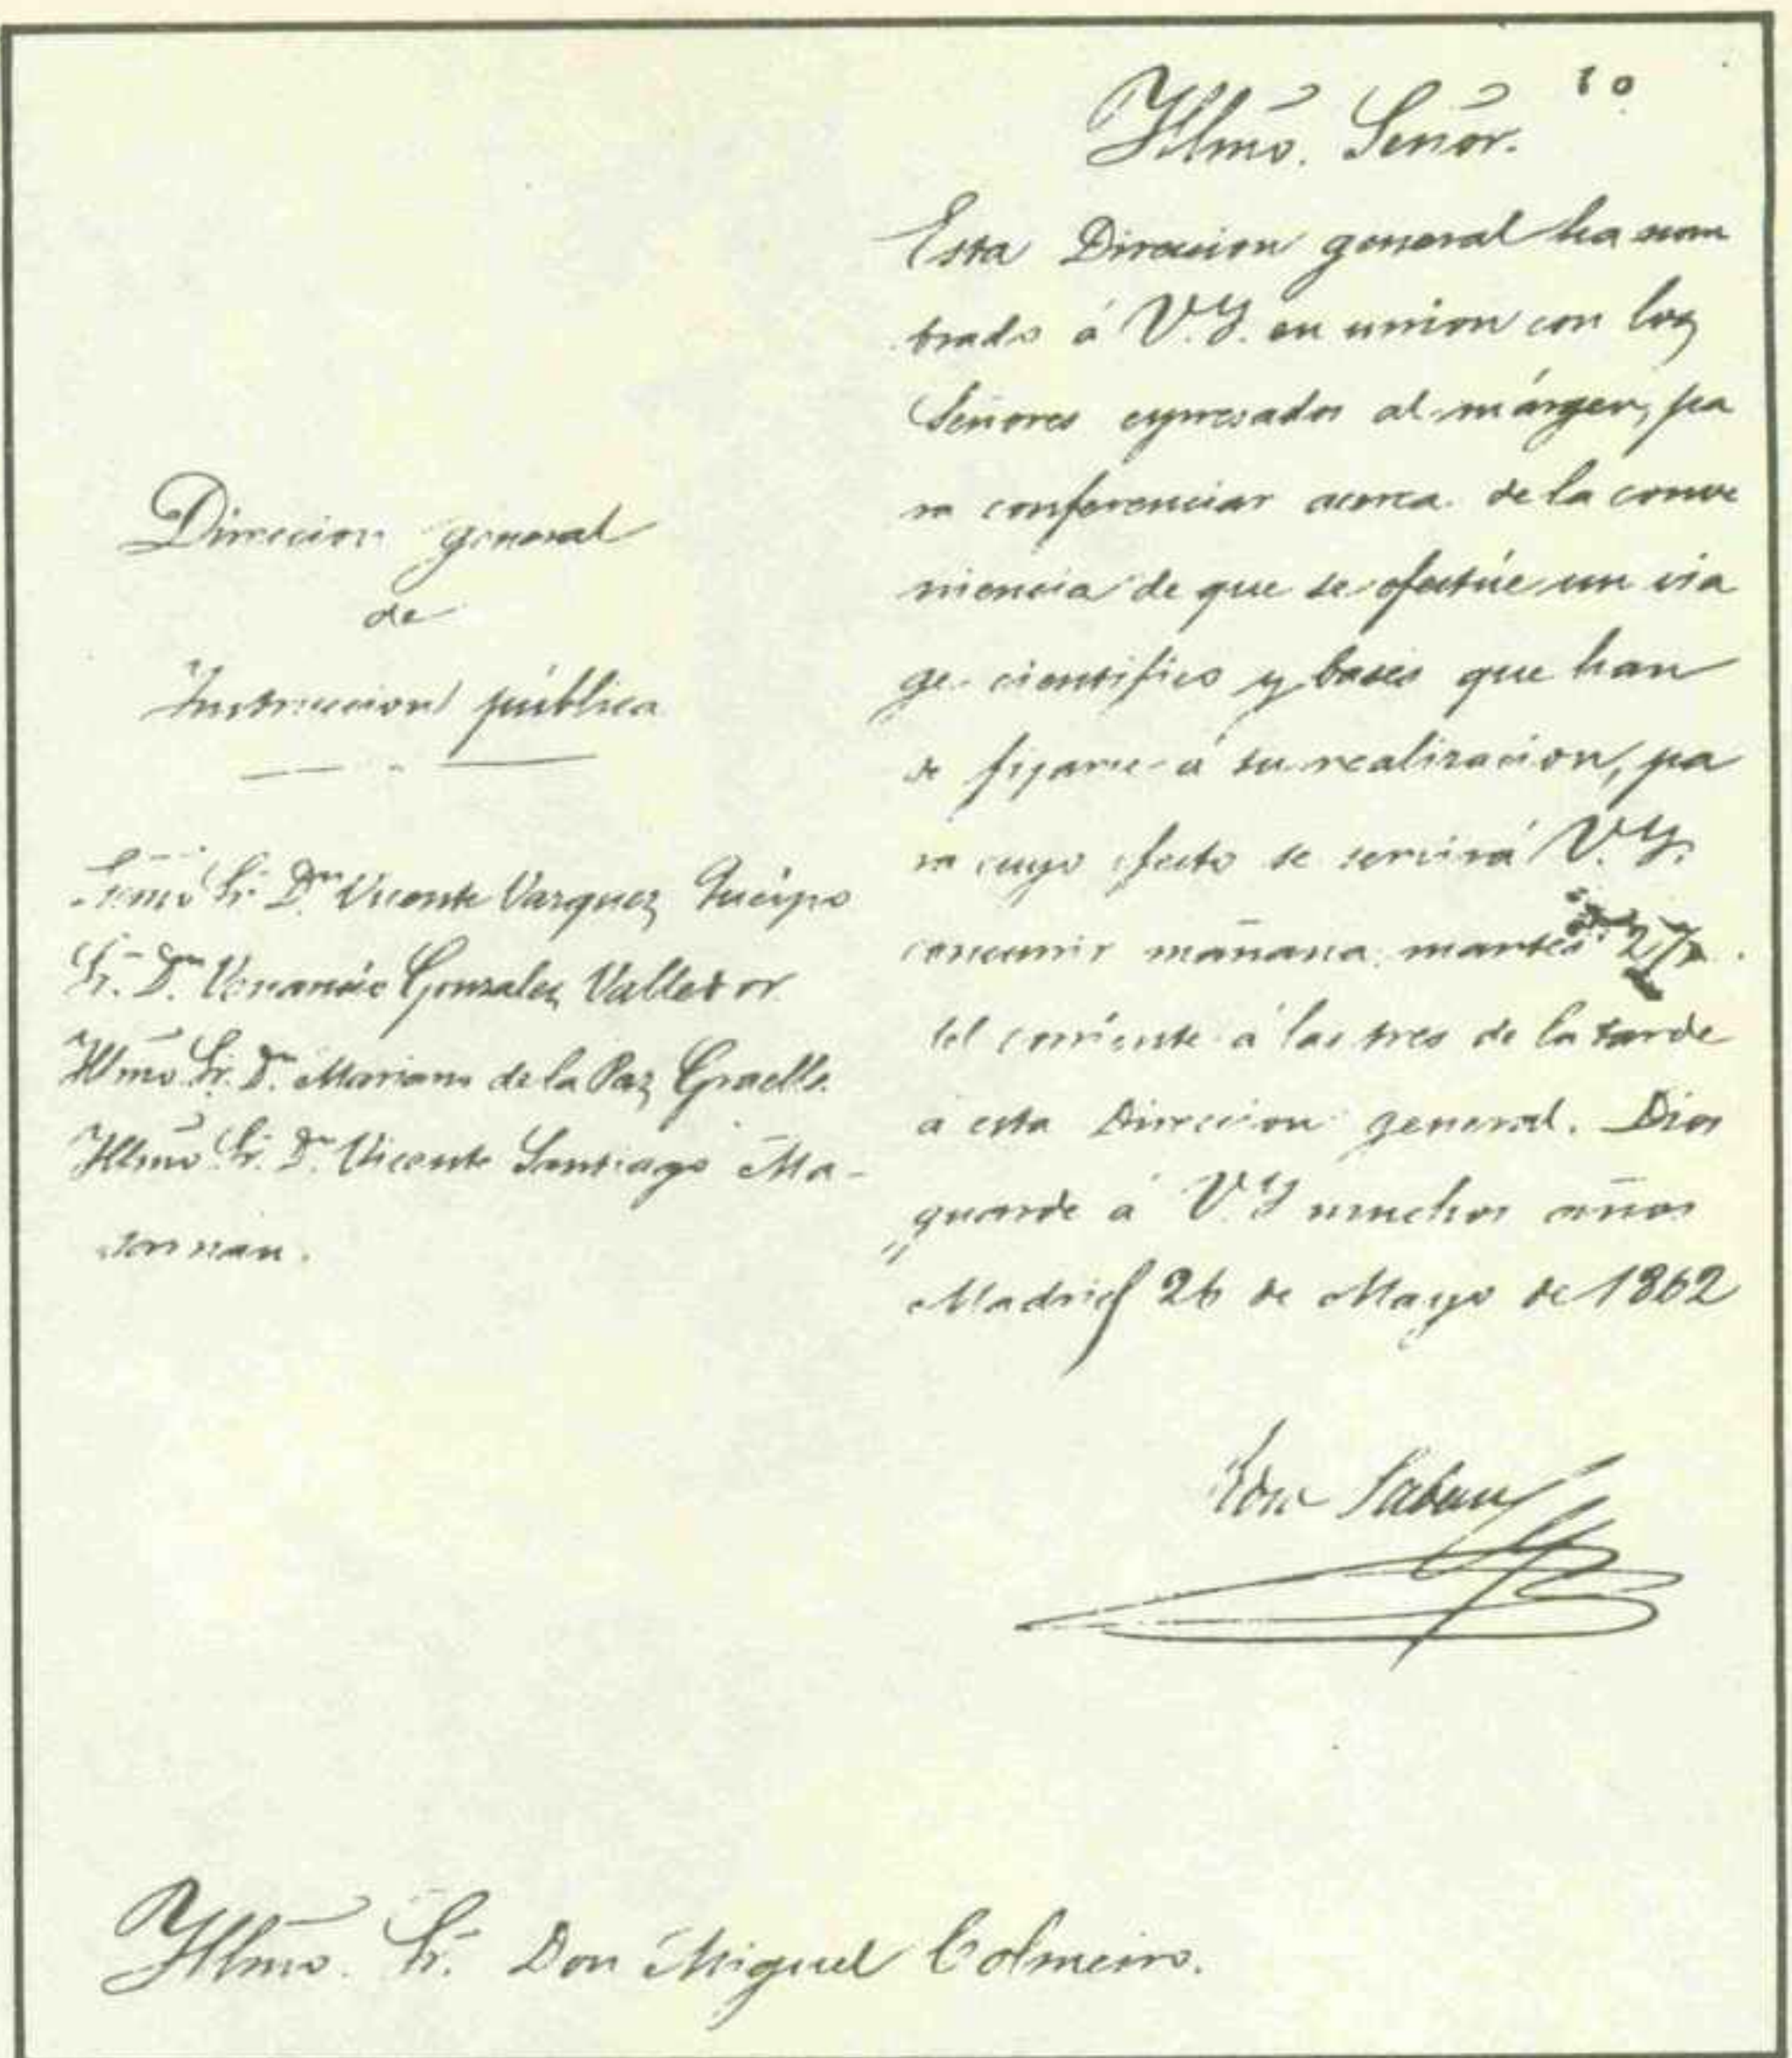 10
Yllmo. Señor.
Direccion general
de
Instruccion pública
Ecsmo Sr. Dn. Vicente Vazquez Queipo
Sr. Dn. Venancio Gonzalez Valledor
Yllmo Sr. Dn. Mariano de la Paz Graells.
Yllmo Sr. Dn. Vicente Santiago Ma-
sarnau.
Esta Direccion general ha nom
brado á V.Y. en union con los
Señores espresados al márgen, pa
ra conferenciar acerca de la conve
niencia de que se efectúe un via
ge cientifico y bases que han
de fijarse á su realizacion, pa
ra cuyo efecto se servirá V.Y.
concurrir mañana martes 27
del corriente á las tres de la tarde
á esta Direccion general. Dios
guarde á V.Y muchos años
Madrid 26 de Mayo de 1862
Sabau
Yllmo. Sr. Don Miguel Colmeiro.